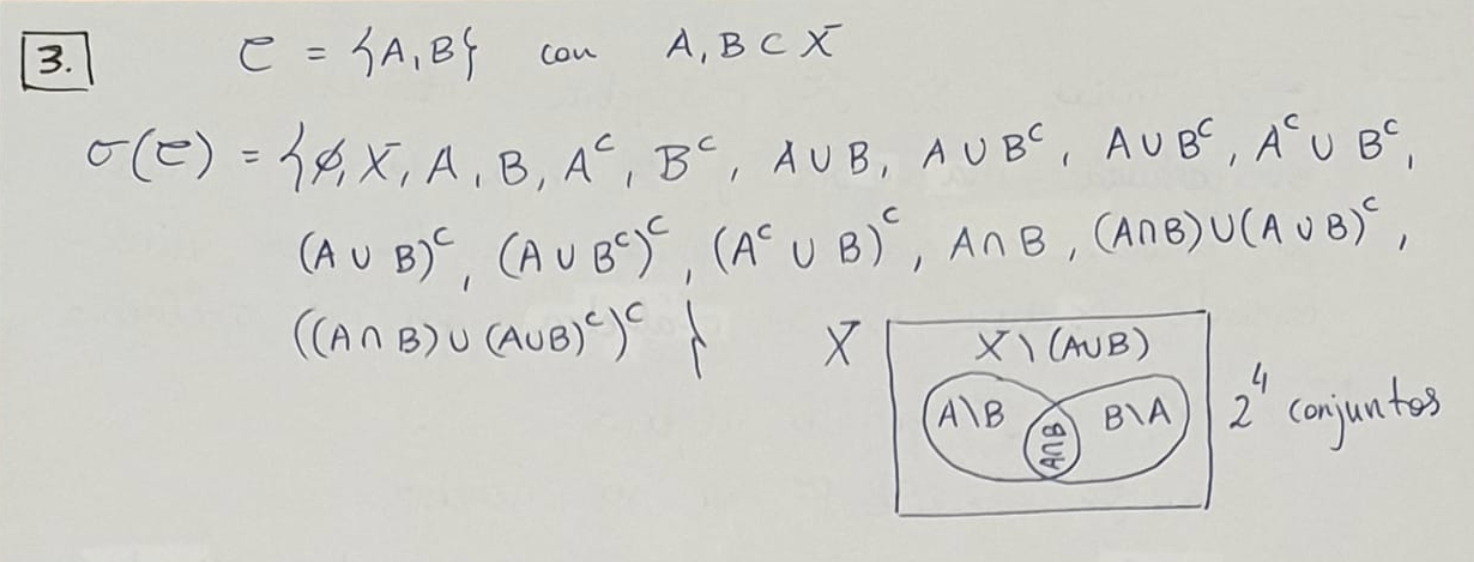 3. C = {A, B} con A, B ⊂ X
σ(C) = {∅, X, A, B, Aᶜ, Bᶜ, A ∪ B, A ∪ Bᶜ, A ∪ Bᶜ, Aᶜ ∪ Bᶜ,
(A ∪ B)ᶜ, (A ∪ Bᶜ)ᶜ, (Aᶜ ∪ B)ᶜ, A ∩ B, (A ∩ B) ∪ (A ∪ B)ᶜ,
((A ∩ B) ∪ (A ∪ B)ᶜ)ᶜ }
X
X \ (A ∪ B)
A \ B
A ∩ B
B \ A
2⁴ conjuntos